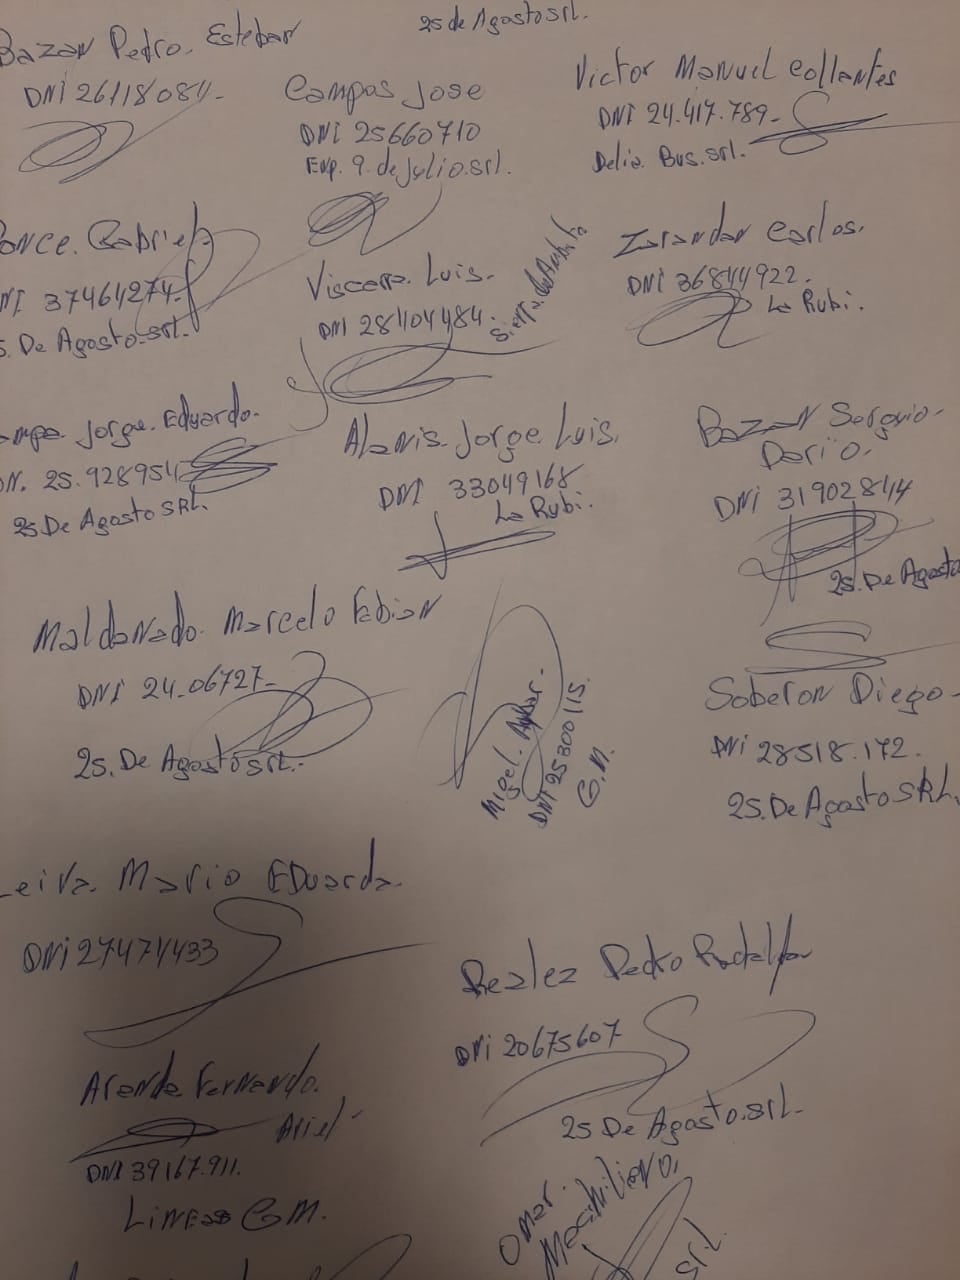 25 de Agosto srl.
Bazan Pedro. Esteban
DNI 26118084-
Campos Jose
DNI 25660710
Enp. 9. de Julio.srl.
Victor Manuel Collantes
DNI 24.417.789-
Delia. Bus.srl.
once. Gabriel
NI 37464274-
5. De Agosto.srl.
Luis.
DNI 28404484.
Carlos.
DNI 36844922.
La Rubi.
Jorge. Eduardo.
DN. 25.928954
25 De Agosto SRL.
Alanis. Jorge Luis.
DNI 33049168
La Rubi.
Bazan Sergio-
Dario.
DNI 31902844
25. De Agosto
Maldonado. Marcelo Fabian
DNI 24-06727-
25. De Agosto srl.-
Migel.
DNI 25300115.
G.M.
Soberon Diego-
DNi 28518.172.
25.De Agosto SRL.
Leiva. Mario EDuardo.
DNi 27471433
Pedro
DNi 20675607
25 De Agosto.srl-
Fernando.
Ariel-
DNI 39167.911.
Lineas GM.
Omar.
srl.